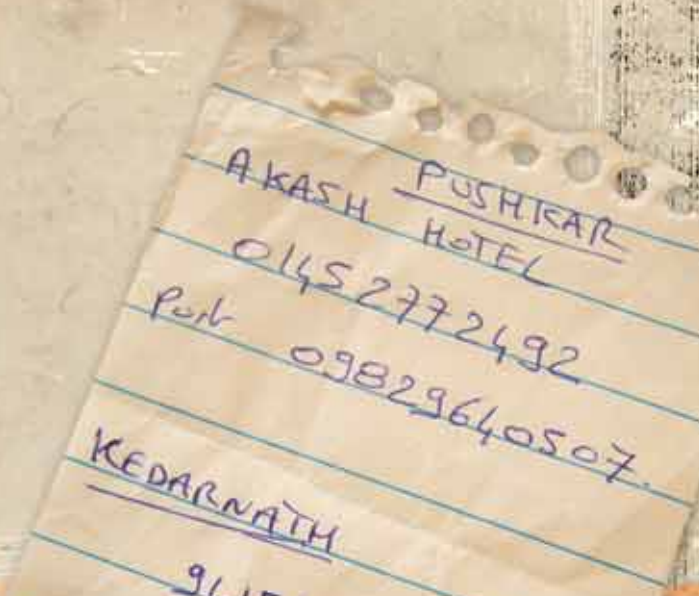 PUSHKAR
AKASH HOTEL
01452772492
Port 09829640507.
KEDARNATH